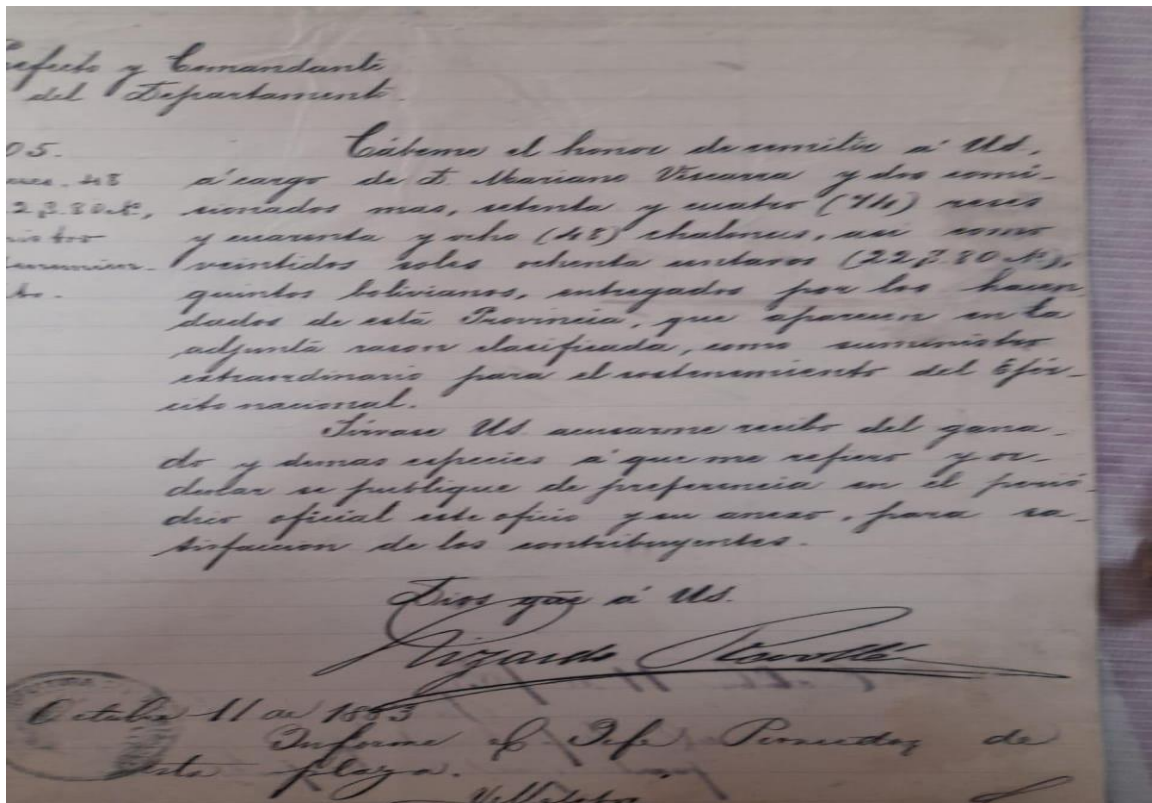 efecto y Comandante
del Departament.
05.
48
2,3.80 cs,
nistro
to.
Cábeme el honor de remitir á Us.
á cargo de D. Mariano Viscarra y dos comi-
sionados mas, setenta y cuatro (74) reses
y cuarenta y ocho (48) chalones, asi como
veintidos soles ochenta centavos (22,3.80 cs),
quintos bolivianos, entregados por los hacen
dados de esta Provincia, que aparecen en la
adjunta razon clasificada, como suministro
extraordinario para el sostenimiento del Ejér-
cito nacional.
Sirvase Us acusarme recibo del gana-
do y demas especies á que me refiero y or-
denar se publique de preferencia en el perió-
dico oficial este oficio y su anexo, para sa-
tisfaccion de los contribuyentes.
Dios gũe á Us.
Lizardo
Octubre 11 de 1883
Informe el Jefe de
esta plaza.